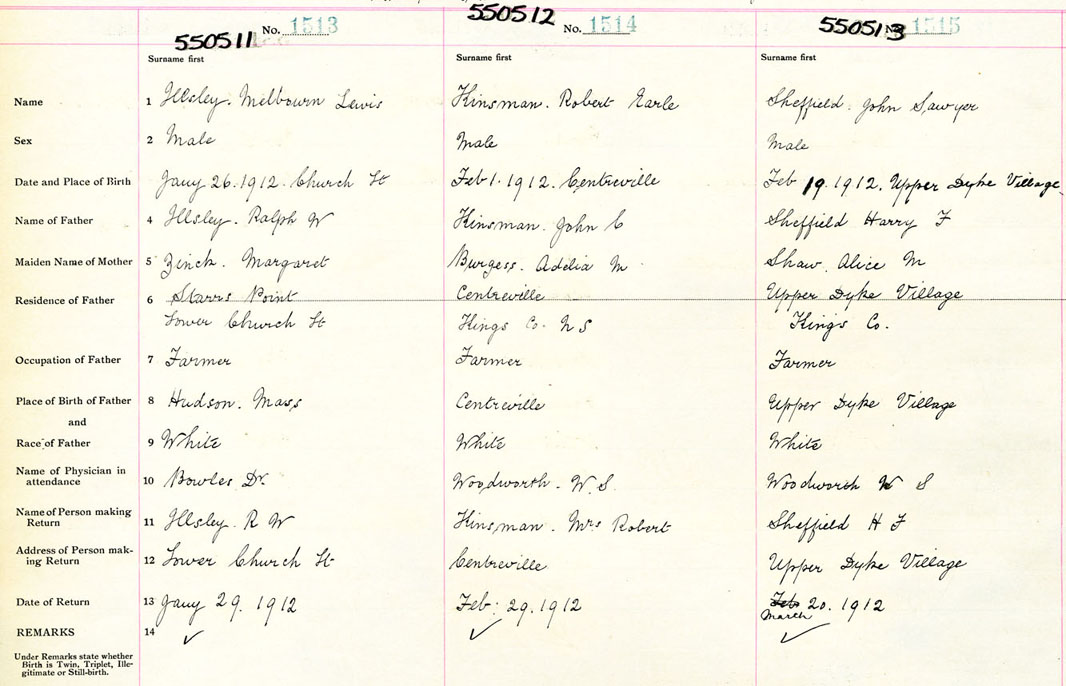 550511 No. 1513 550512 No. 1514 550513 No. 1515
Surname first Surname first Surname first
Name 1 Illsley. Melbourn Lewis Kinsman. Robert Earle Sheffield. John Sawyer
Sex 2 Male Male Male
Date and Place of Birth Jany 26. 1912. Church St Feb 1. 1912. Centreville Feb 19. 1912. Upper Dyke Village
Name of Father 4 Illsley. Ralph W Kinsman. John C Sheffield Harry F
Maiden Name of Mother 5 Zinck. Margaret Burgess. Adelia M Shaw. Alice M
Residence of Father 6 Starrs Point Centreville Upper Dyke Village
Lower Church St Kings Co. N S Kings Co.
Occupation of Father 7 Farmer Farmer Farmer
Place of Birth of Father 8 Hudson. Mass Centreville Upper Dyke Village
and
Race of Father 9 White White White
Name of Physician in
attendance 10 Bowles Dr. Woodworth. W. S. Woodworth W S
Name of Person making
Return 11 Illsley. R W Kinsman. Mrs Robert Sheffield H F
Address of Person mak-
ing Return 12 Lower Church St Centreville Upper Dyke Village
Date of Return 13 Jany 29. 1912 Feb. 29. 1912 Feb 20. 1912
March
REMARKS 14 ✓ ✓ ✓
Under Remarks state whether
Birth is Twin, Triplet, Ille-
gitimate or Still-birth.